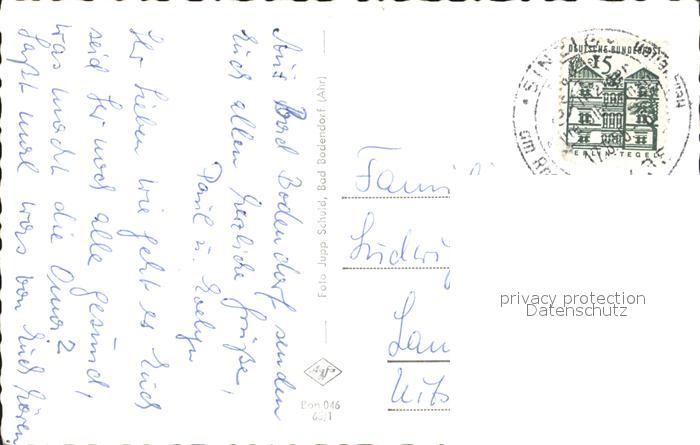 Aus Bad Bodendorf senden
Euch allen herzliche Grüße,
Paul u. Evelyn
Ihr Lieben wie geht es Euch
seid Ihr noch alle gesund,
was macht die Oma?
Laßt mal was von Euch hören
Foto Jupp Schuld, Bad Bodendorf (Ahr)
Agfa
Bon 046
Fami
Ludwig
DEUTSCHE BUNDESPOST
15
TEGEL
SINZIG
privacy protection
Datenschutz